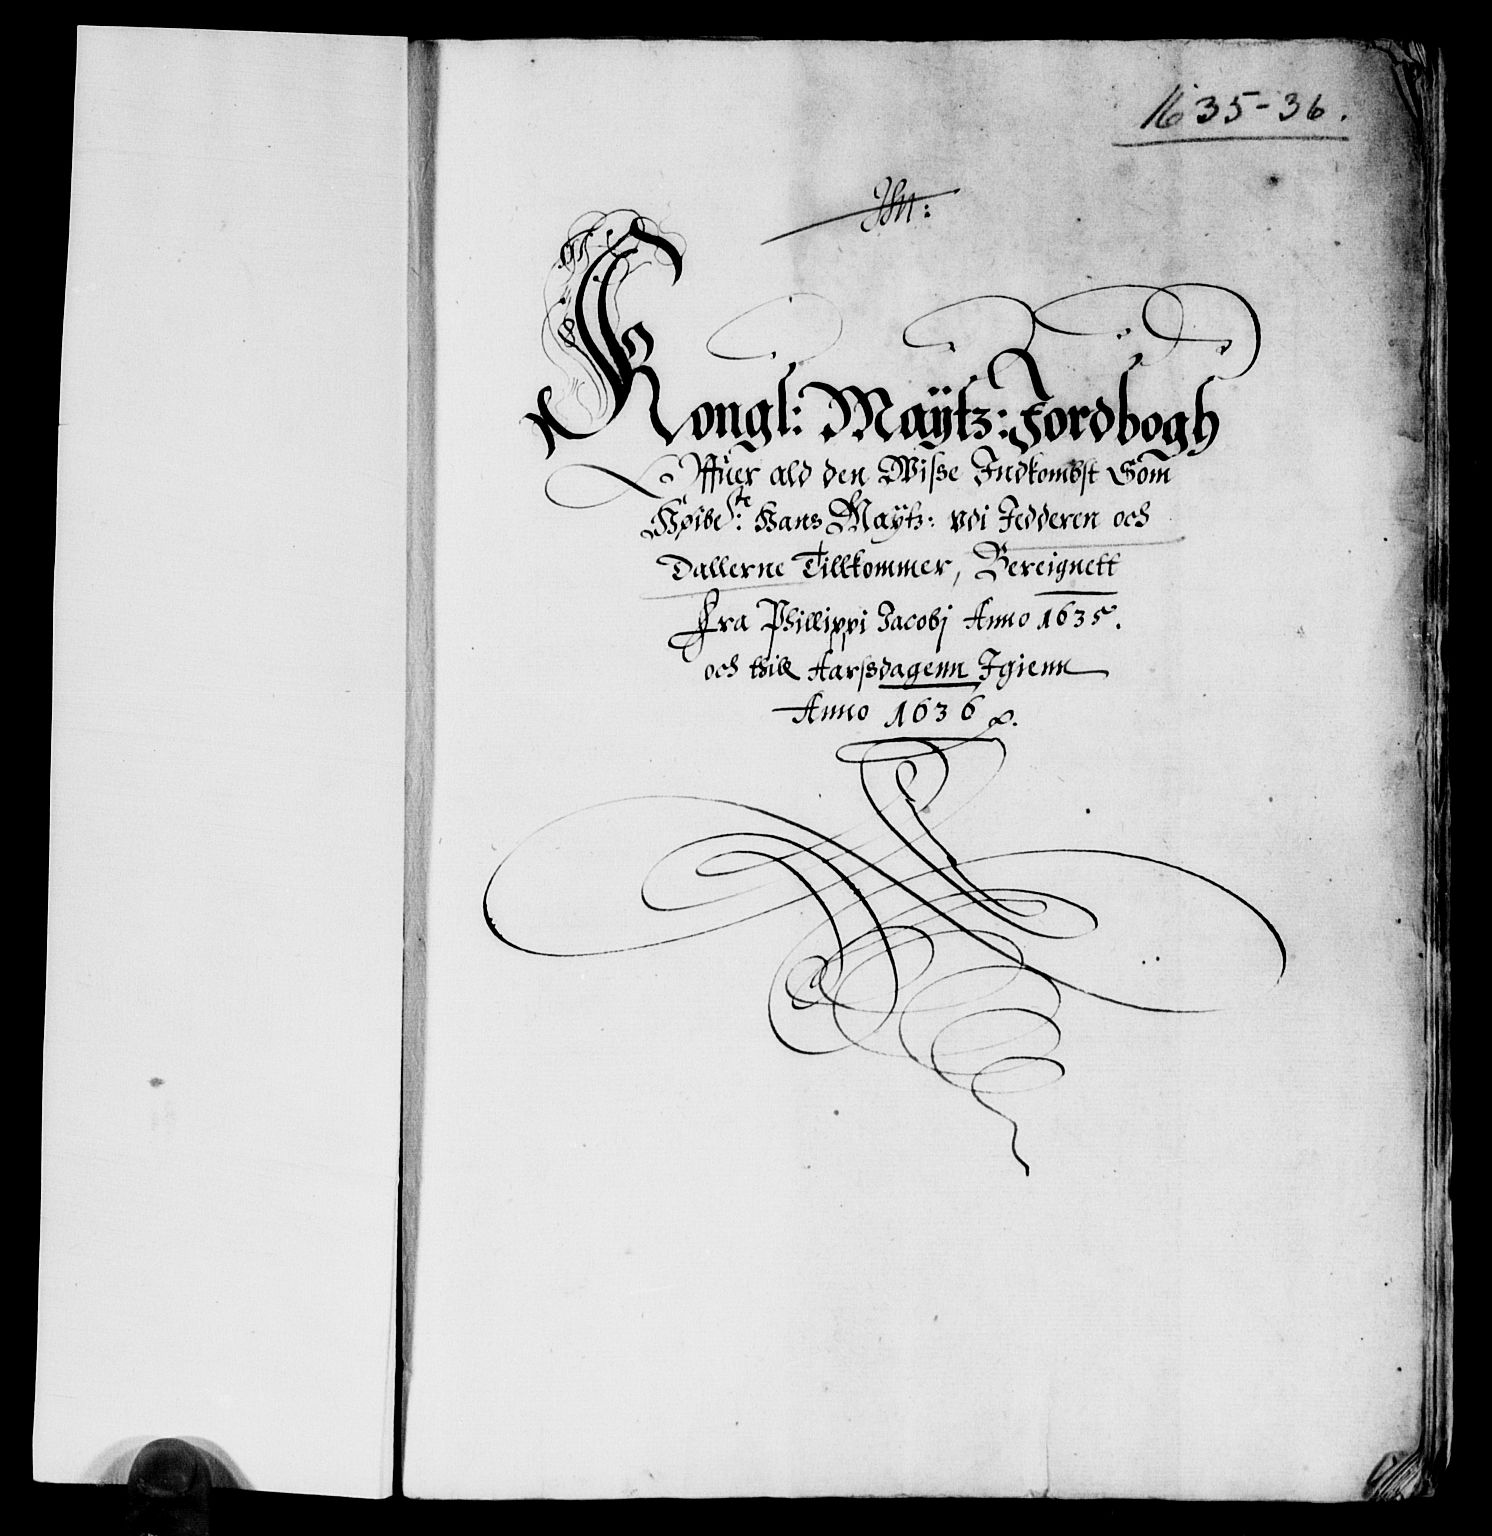 1635-36.
Kongl: Maÿtz: Jordbogh
Offuer ald den Wisse Indkombst Som
Høibe:te Hans Maÿtz: vdi Jedderen och
Dallerne Tillkommer, Bereignett
Fra Phillippi Jacobj Anno 1635.
och till Aarssdagenn Igienn
Anno 1636